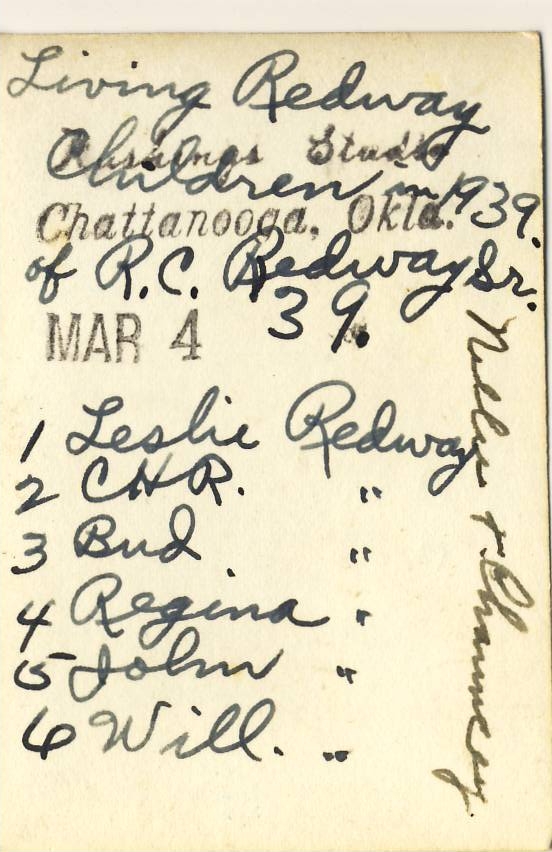 Living Redway
Studio
Children in 1939.
Chattanooga, Okla.
of R.C. Redway Sr.
MAR 4 39.
1 Leslie Redway
2 CHR. "
3 Bud "
4 Regina "
5 John "
6 Will. "
+ Chauncey